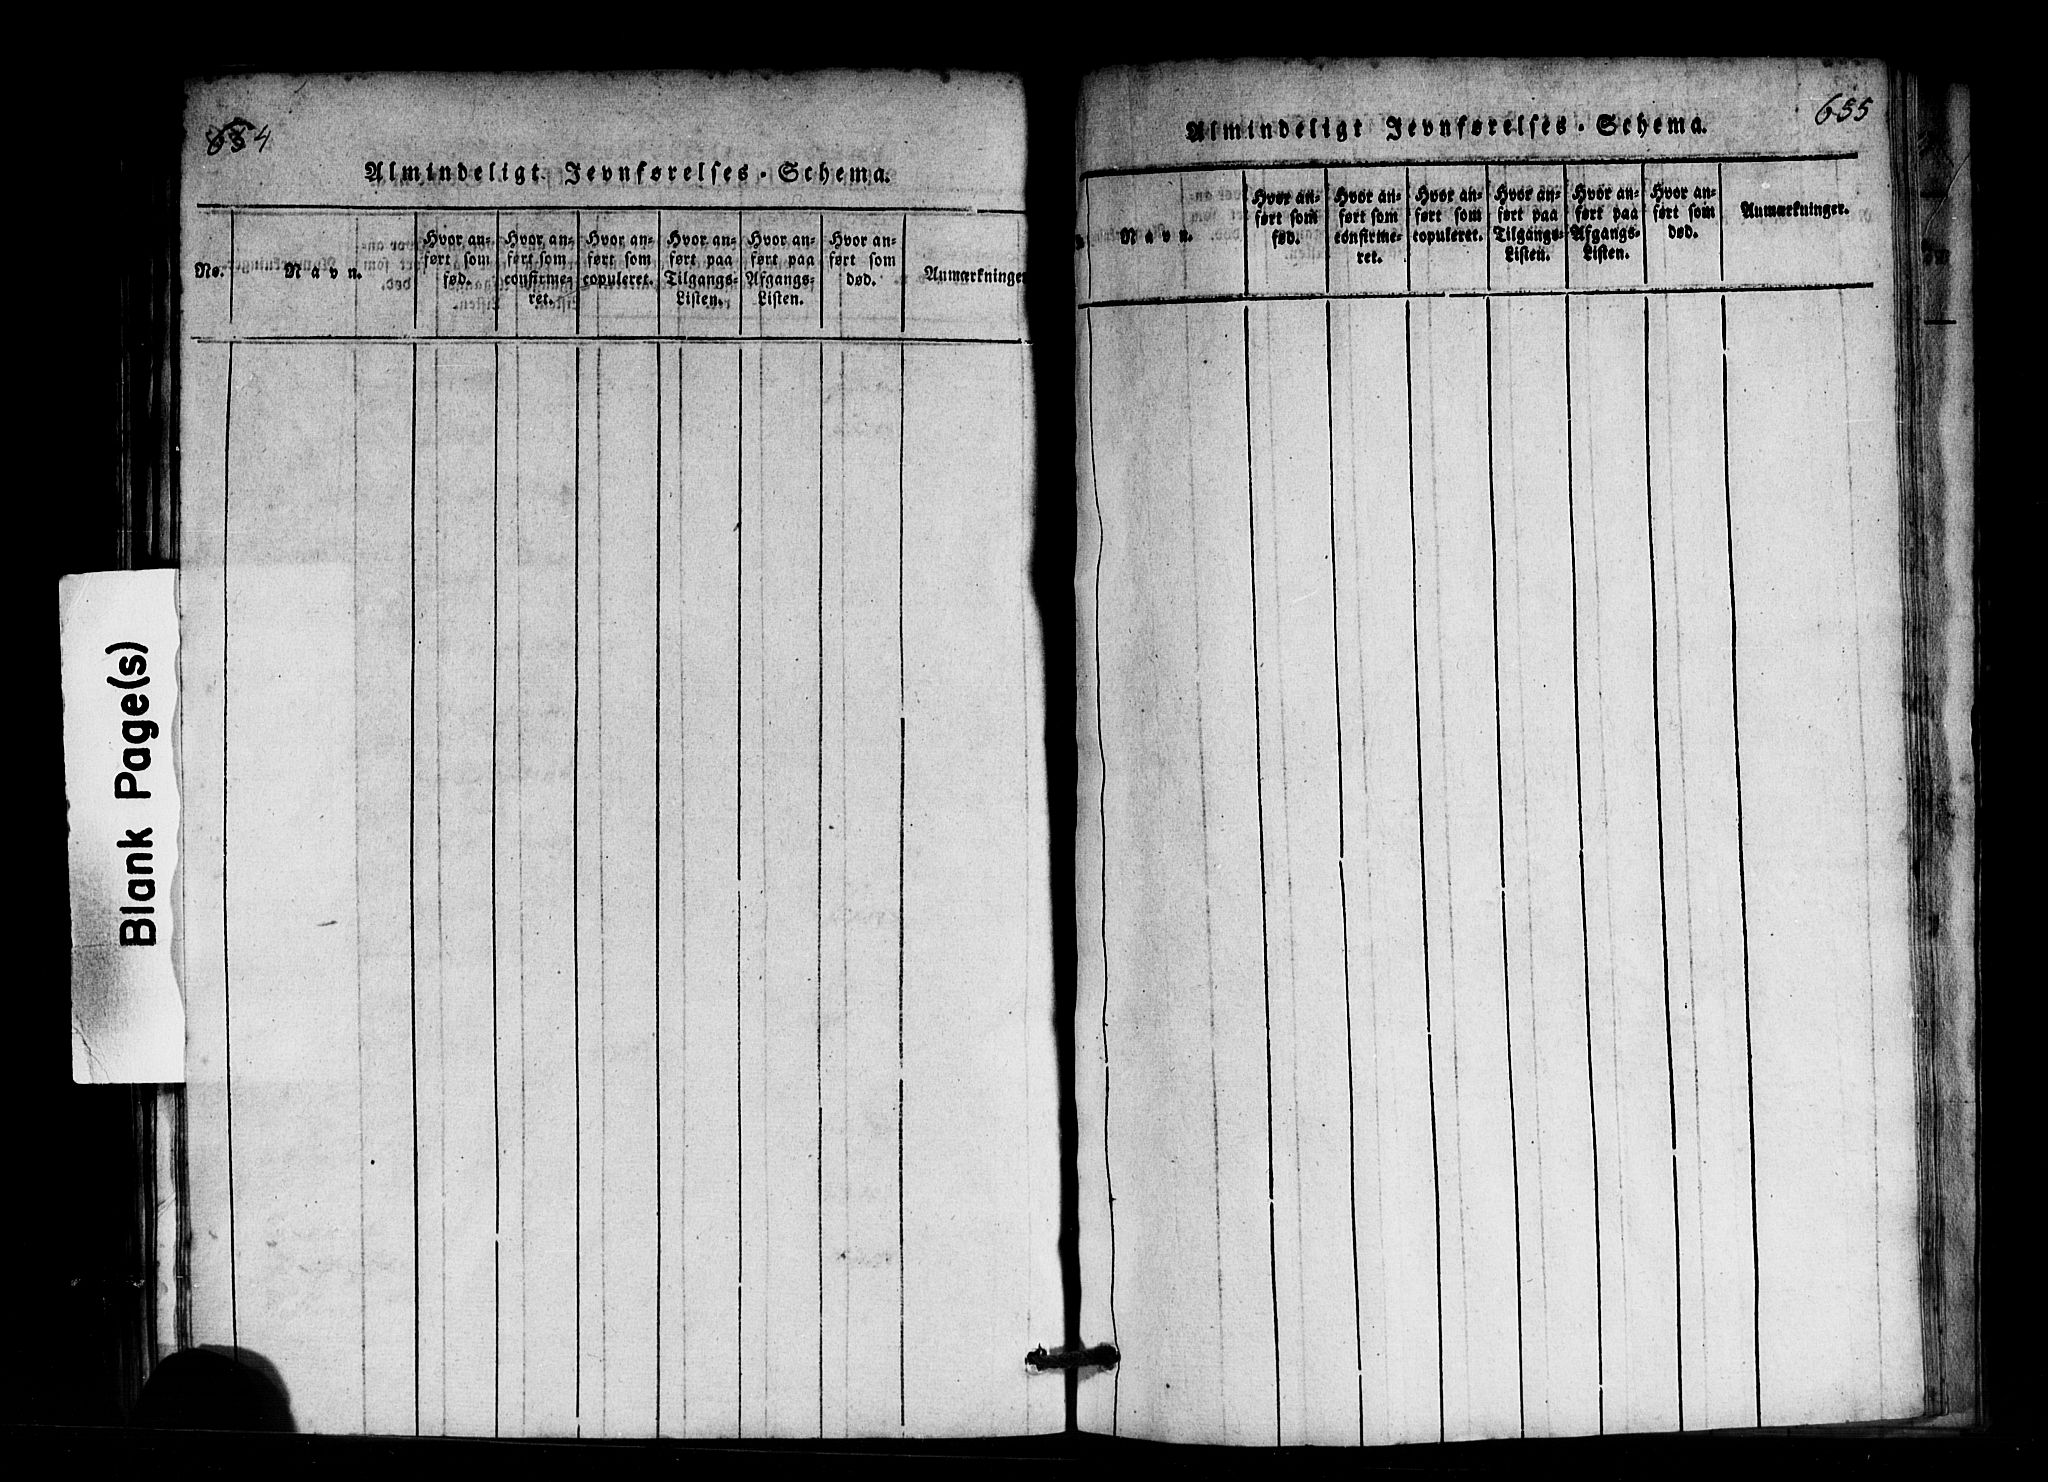 654
Almindeligt Jevnførelses-Schema.
No.
Navn.
Hvor an-
ført som
fød.
Hvor an-
ført som
confirme-
ret.
Hvor an-
ført som
copuleret.
Hvor an-
ført paa
Tilgangs-
Listen.
Hvor an-
ført paa
Afgangs-
Listen.
Hvor an-
ført som
død.
Anmærkninger
Blank Page(s)
655
Almindeligt Jevnførelses-Schema.
Navn.
Hvor an-
ført som
fød.
Hvor an-
ført som
confirme-
ret.
Hvor an-
ført som
copuleret.
Hvor an-
ført paa
Tilgangs-
Listen.
Hvor an-
ført paa
Afgangs-
Listen.
Hvor an-
ført som
død.
Anmærkninger.